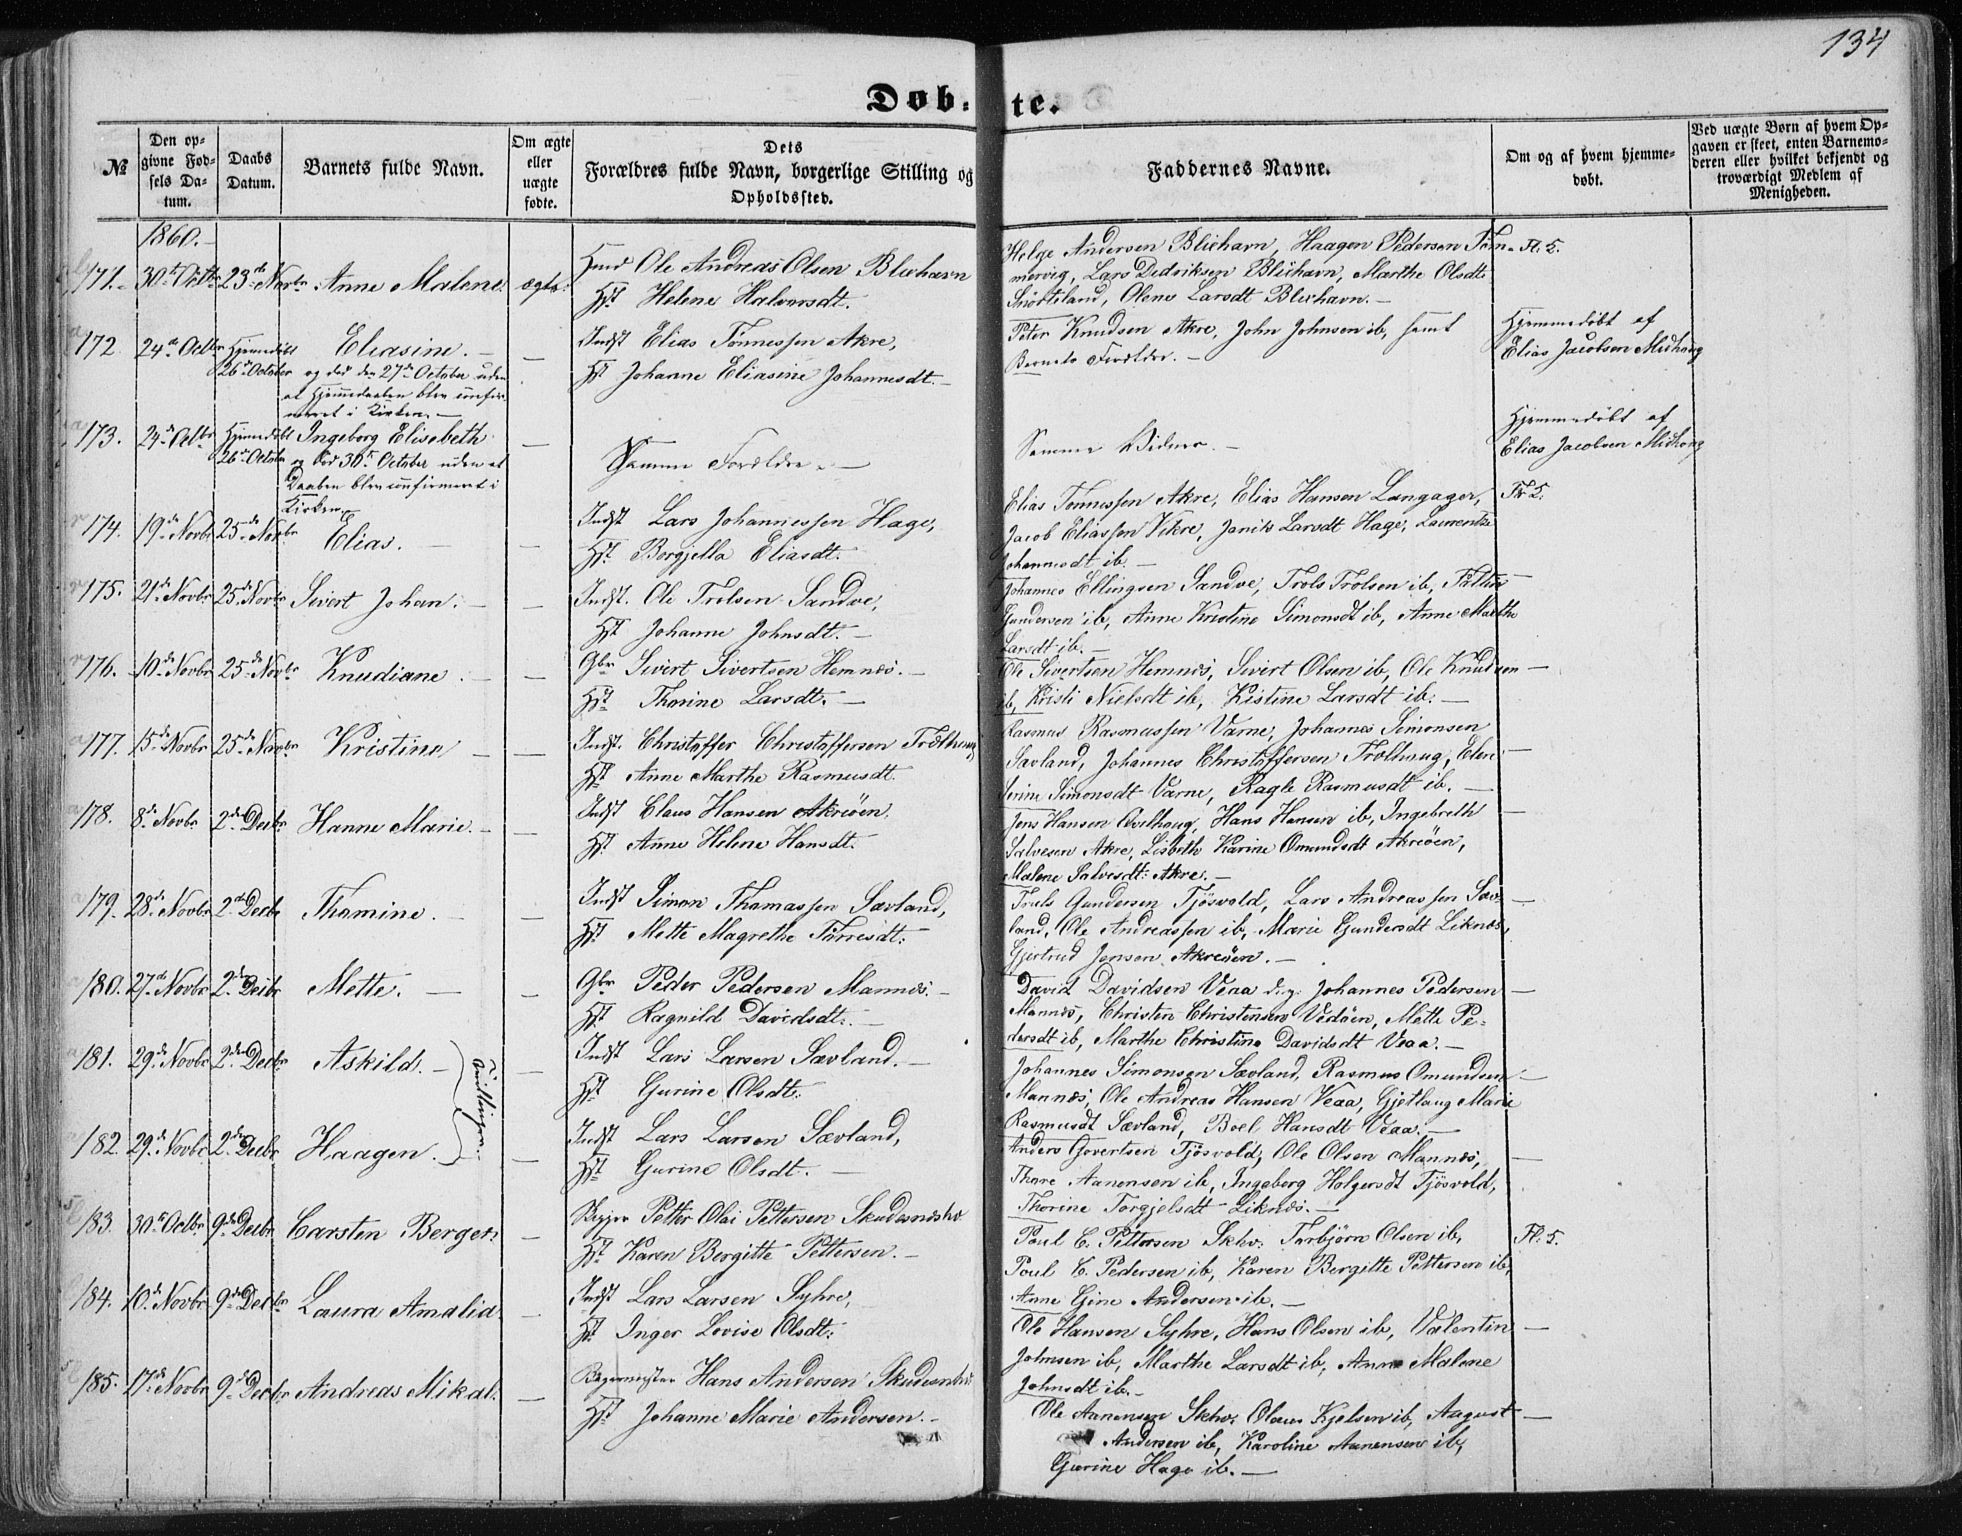 134
Døb-te.
№
Den op-
givne Fød-
sels Da-
tum.
Daabs
Datum.
Barnets fulde Navn.
Om ægte
eller
uægte
fødte.
Dets
Forældres fulde Navn, borgerlige Stilling og
Opholdssted.
Faddernes Navne.
Om og af hvem hjemme-
døbt.
Ved uægte Børn af hvem Op-
gaven er skeet, enten Barnemo-
deren eller hvilket bekjendt og
troværdigt Medlem af
Menigheden.
1860.-
171. 30te Octbr 23de Novbr Anne Malene. ægte.
Ole Andreas Olsen Blixhavn
Hst Helene Halvorsdt.
Helge Andersen Blixhavn, Haagen Pedersen Tom- Fl. 5.
mervig, Lars Dedriksen Blixhavn, Marthe Olsdt
Olene Larsdt Blixhavn.-
172. 24de Octbr Hjemmedøbt
26de October
Eliasine.-
og død den 27de October uden
at Hjemmedaaben blev confir-
meret i Kirken.-
Indst Elias Tønnessen Akre,
Hst Johanne Eliasine Johannesdt.-
Peter Knudsen Akre, John Johnsen ib, samt
Barnets Forældre.-
Hjemmedøbt af
Elias Jacobsen Midhoug
173. 24de Octbr Hjemmedøbt
26de October
Ingeborg Elisebeth
og død 30te October uden at
Daaben blev confirmeret i
Kirken.
Samme Forældre.-
Samme Vidner.-
Hjemmedøbt af
Elias Jacobsen Midhoug
174. 19de Novbr 25de Novbr Elias.-
Indst Lars Johannessen Hage,
Hst Borgjella Eliasdt.
Elias Tønnessen Akre, Elias Hansen Langager, Fl. 5.
Jacob Eliassen Vikre, Janik Larsdt Hage, Laurentze
Johannesdt ib.-
175. 21de Novbr 25de Novbr Sivert Johan.-
Indst. Ole Trolsen Sandve,
Hst Johanne Johnsdt.-
Johannes Ellingsen Sandve, Trols Trolsen ib,
Gundersen ib, Anne Kristine Simonsdt ib, Anne Marthe
Larsdt ib.-
176. 10de Novbr 25de Novbr Knudiane.-
Gbr Sivert Sivertsen Hemnes.-
Hst Thorine Larsdt.-
Ole Sivertsen Hemnes, Sivert Olsen ib, Ole Knudsen
ib, Kristi Nielsdt ib, Kistine Larsdt ib.-
177. 15de Novbr 25de Novbr Kristine
Indst. Christoffer Christoffersen Trælhaug
Hst Anne Marthe Rasmusdt.
Rasmus Rasmussen Varne, Johannes Simonsen
Sævland, Johannes Christoffersen Trælhaug, Elen
Serine Simonsdt Varne, Ragle Rasmusdt ib.-
178. 8de Novbr 2den Decbr Hanne Marie.-
Indst Claus Hansen Akreöen.
Hst Anne Helene Hansdt.
Jens Hansen Ovelhoug, Hans Hansen ib, Ingebreth
Salvesen Akre, Lisbeth Karine Omundsdt Akreöen,
Malene Salvesdt: Akre.-
179. 28de Novbr 2den Decbr Thomine.-
Indst Simon Thomassen Sævland,
Hst. Mette Magrethe Tørresdt:
Truls Gundersen Tjösvold, Lars Andreassen Sæv-
land, Ole Andreassen ib, Marie Gundersdt Liknes,
Gjertrud Jensen Akreöen.-
180. 27de Novbr 2den Decbr Mette.-
Gbr Peder Pedersen Mannes.-
Hst Ragnild Davidsdt.-
David Davidsen Veaa, Johannes Pedersen
Mannes, Christen Christensen Vedöen, Mette Pe-
dersdt ib, Marthe Christine Davidsdt Veaa.-
181. 29de Novbr 2den Decbr Askild.-
Tvillinger.
Indst Lars Larsen Sævland.-
Hst Gurine Olsdt:
Johannes Simonsen Sævland, Rasmus Omundsen
Mannes, Ole Andreas Hansen Veaa, Gjetlaug Marie
Rasmusdt Sævland, Boel Hansdt Veaa.-
182. 29de Novbr 2den Decbr Haagen.
Indst Lars Larsen Sævland,
Hst: Gurine Olsdt.-
Anders Govertsen Tjösvold, Ole Olsen Mannes,
Thore Aanensen ib, Ingeborg Holgersdt Tjösvold,
Thorine Torgjelsdt Liknes.-
183. 30te Octbr 9de Decbr Carsten Berger.
Petter Olai Pettersen Skudesneshv.
Hst Karen Bergitte Pettersen.-
Poul C. Pettersen Skhv: Torbjörn Olsen ib, Fl. 5.
Poul C. Pedersen ib, Karen Bergitte Pettersen ib,
Anne Gine Andersen ib.-
184. 10de Novbr 9de Decbr Laura Amalia.
Indst Lars Larsen Syhre,
Hst. Inger Lovise Olsdt:
Ole Hansen Syhre, Hans Olsen ib, Valentin
Johnsen ib, Marthe Larsdt ib, Anne Malene
Johnsdt ib.-
185. 17de Novbr 9de Decbr Andreas Mikal.
Bagermester Hans Andersen Skudesneshv.
Hst Johanne Marie Andersen.-
Ole Aanensen Skhv: Olaus Kjelsen ib, August
Andersen ib, Karoline Aanensen ib,
Gurine Hage ib.-